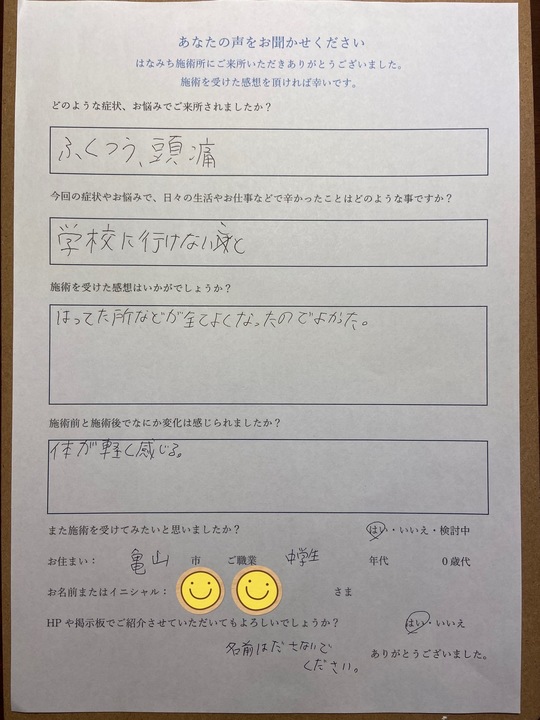 あなたの声をお聞かせください
はなみち施術所にご来所いただきありがとうございました。
施術を受けた感想を頂ければ幸いです。
どのような症状、お悩みでご来所されましたか？
ふくつう、頭痛
今回の症状やお悩みで、日々の生活やお仕事などで辛かったことはどのような事ですか？
学校に行けないこと
施術を受けた感想はいかがでしょうか？
はってた所などが全てよくなったのでよかた。
施術前と施術後でなにか変化は感じられましたか？
体が軽く感じる。
また施術を受けてみたいと思いましたか？ はい・いいえ・検討中
お住まい： 亀山 市 ご職業 中学生 年代 0歳代
お名前またはイニシャル： さま
HPや掲示板でご紹介させていただいてもよろしいでしょうか？ はい・いいえ
名前はださないで
ください。
ありがとうございました。